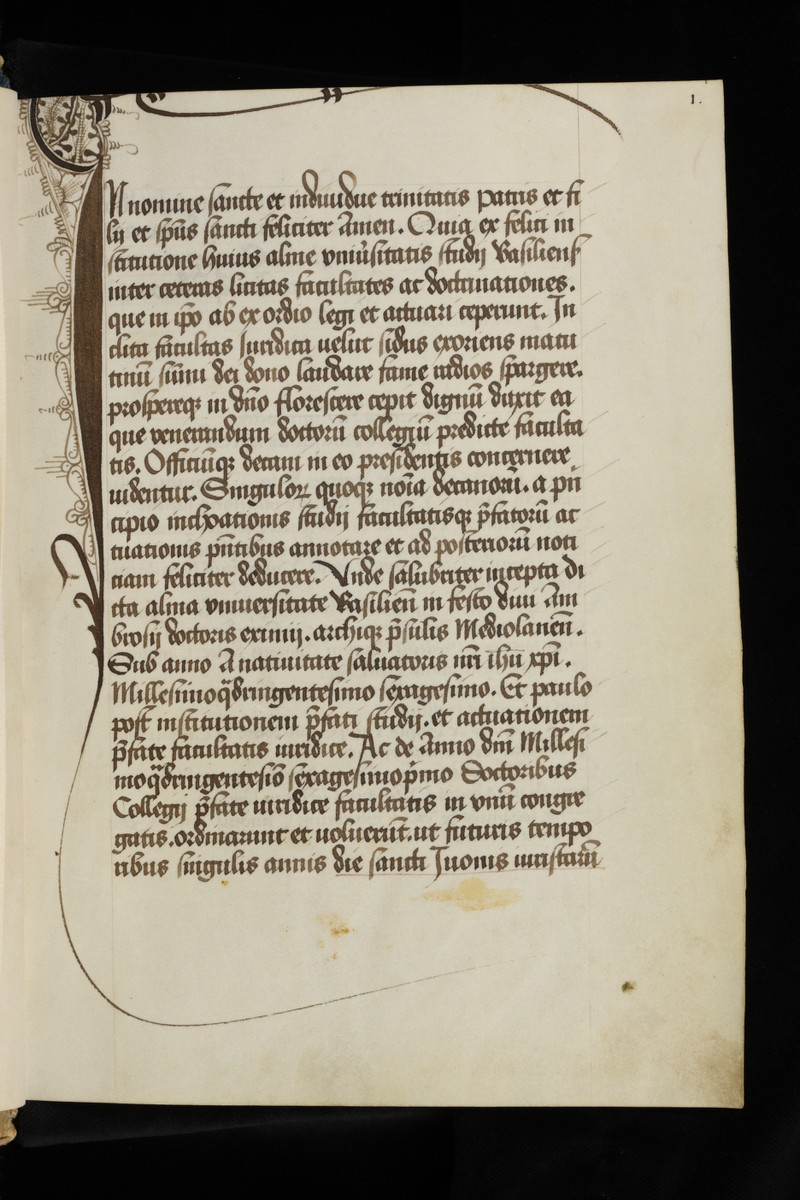 1.
IN nomine sancte et indiuidue trinitatis Patris et fi
lij et sp̄us sancti feliciter Amen. Quia ex felici in
stitutione huius alme vniu̾sitatis studij Basiliens̄
inter ceteras licitas facultates ac doctrinationes.
que in ip̄o ab exordio legi et actuari ceperunt. In
clita facultas Juridica velut sidus exoriens matu
tinū sūmi dei dono laudare fame radios spargere.
prospereqꝫ in dn̄o florescere cepit dignū duxit ea
que venerandum doctorū collegiū predicte faculta
tis. Officiūqꝫ decani in eo presidentis concernere
uidentur. Singuloꝝ quoqꝫ noīa decanorū. a prī
cipio inchoationis studij facultatisqꝫ p̄fatorū ac
tuationis pn̄tibus annotare et ad posteriorū noti
ciam feliciter deducere. Vnde salubriter incepta di
cta alma vniuersitate Basilien̄ in festo diui Am
brosij doctoris eximij. archiqꝫ p̄sulis Mediolanen̄.
Sub anno A natiuitate saluatoris nr̄i ih̄u xp̄i.
Millesimoq̄dringentesimo sexagesimo. Et paulo
post institutionem p̄fati studij. et actuationem
p̄fate facultatis iuridice. Ac de Anno dn̄i Millesi
moq̄dringentesīo sexagesimop̄mo Doctoribus
Collegij p̄fate iuridice facultatis in vnū congre
gatis. ordinarunt et uoluerūt. ut futuris tempo
ribus singulis annis die sancti Juonis iuristarū